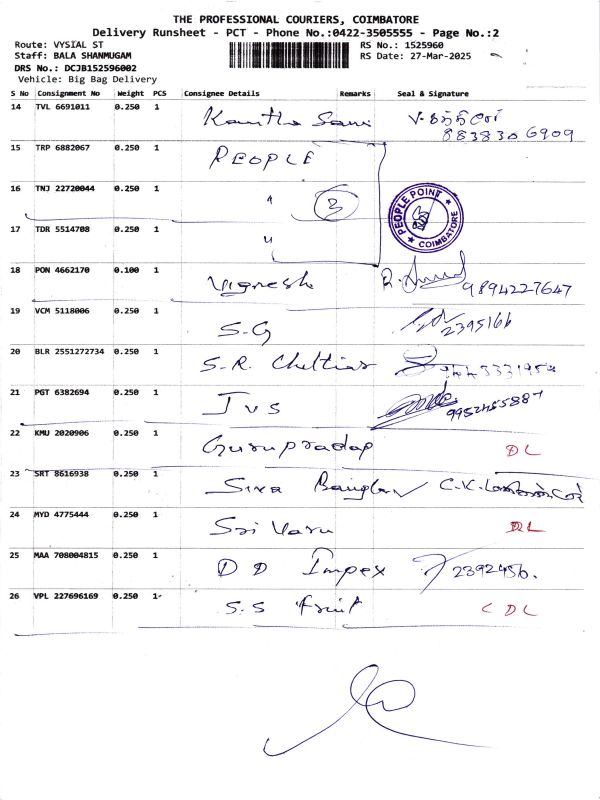 THE PROFESSIONAL COURIERS, COIMBATORE
Delivery Runsheet - PCT - Phone No.:0422-3505555 - Page No.:2
Route: VYSIAL ST RS No.: 1525960
Staff: BALA SHANMUGAM RS Date: 27-Mar-2025
DRS No.: DCJB152596002
Vehicle: Big Bag Delivery
S No Consignment No Weight PCS Consignee Details Remarks Seal & Signature
14 TVL 6691011 0.250 1 Kantha Sami
8838306909
15 TRP 6882067 0.250 1 PEOPLE
16 TNJ 22720044 0.250 1 " 3 PEOPLE POINT COIMBATORE
17 TDR 5514708 0.250 1 "
18 PON 4662170 0.100 1 Vignesh 9894227647
19 VCM 5118006 0.250 1 S-G 2395166
20 BLR 2551272734 0.250 1 S.R. Chettiar
21 PGT 6382694 0.250 1 JVS
22 KMU 2020906 0.250 1 Gurupradap DL
23 SRT 8616938 0.250 1 Siva C.K.
24 MYD 4775444 0.250 1 Sri Varu DL
25 MAA 708004815 0.250 1 D D Impex 2392456.
26 VPL 227696169 0.250 1 S.S Fruit CDL